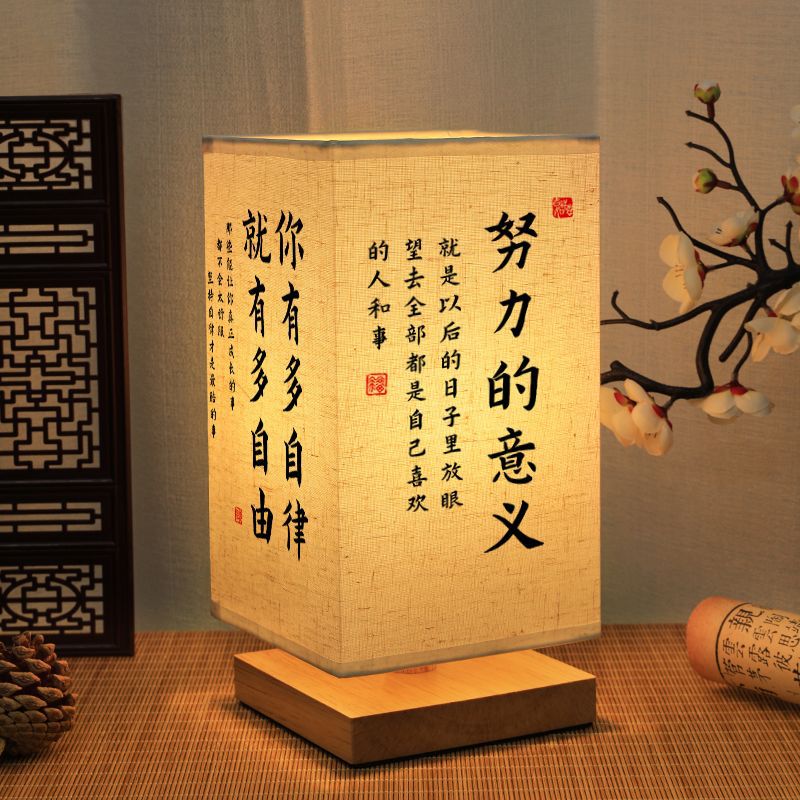 努力的意义
就是以后的日子里放眼
望去全部都是自己喜欢
的人和事
你有多自律
就有多自由
那些能让你真正成长的事
都不会太舒服
坚持自律才是最酷的事